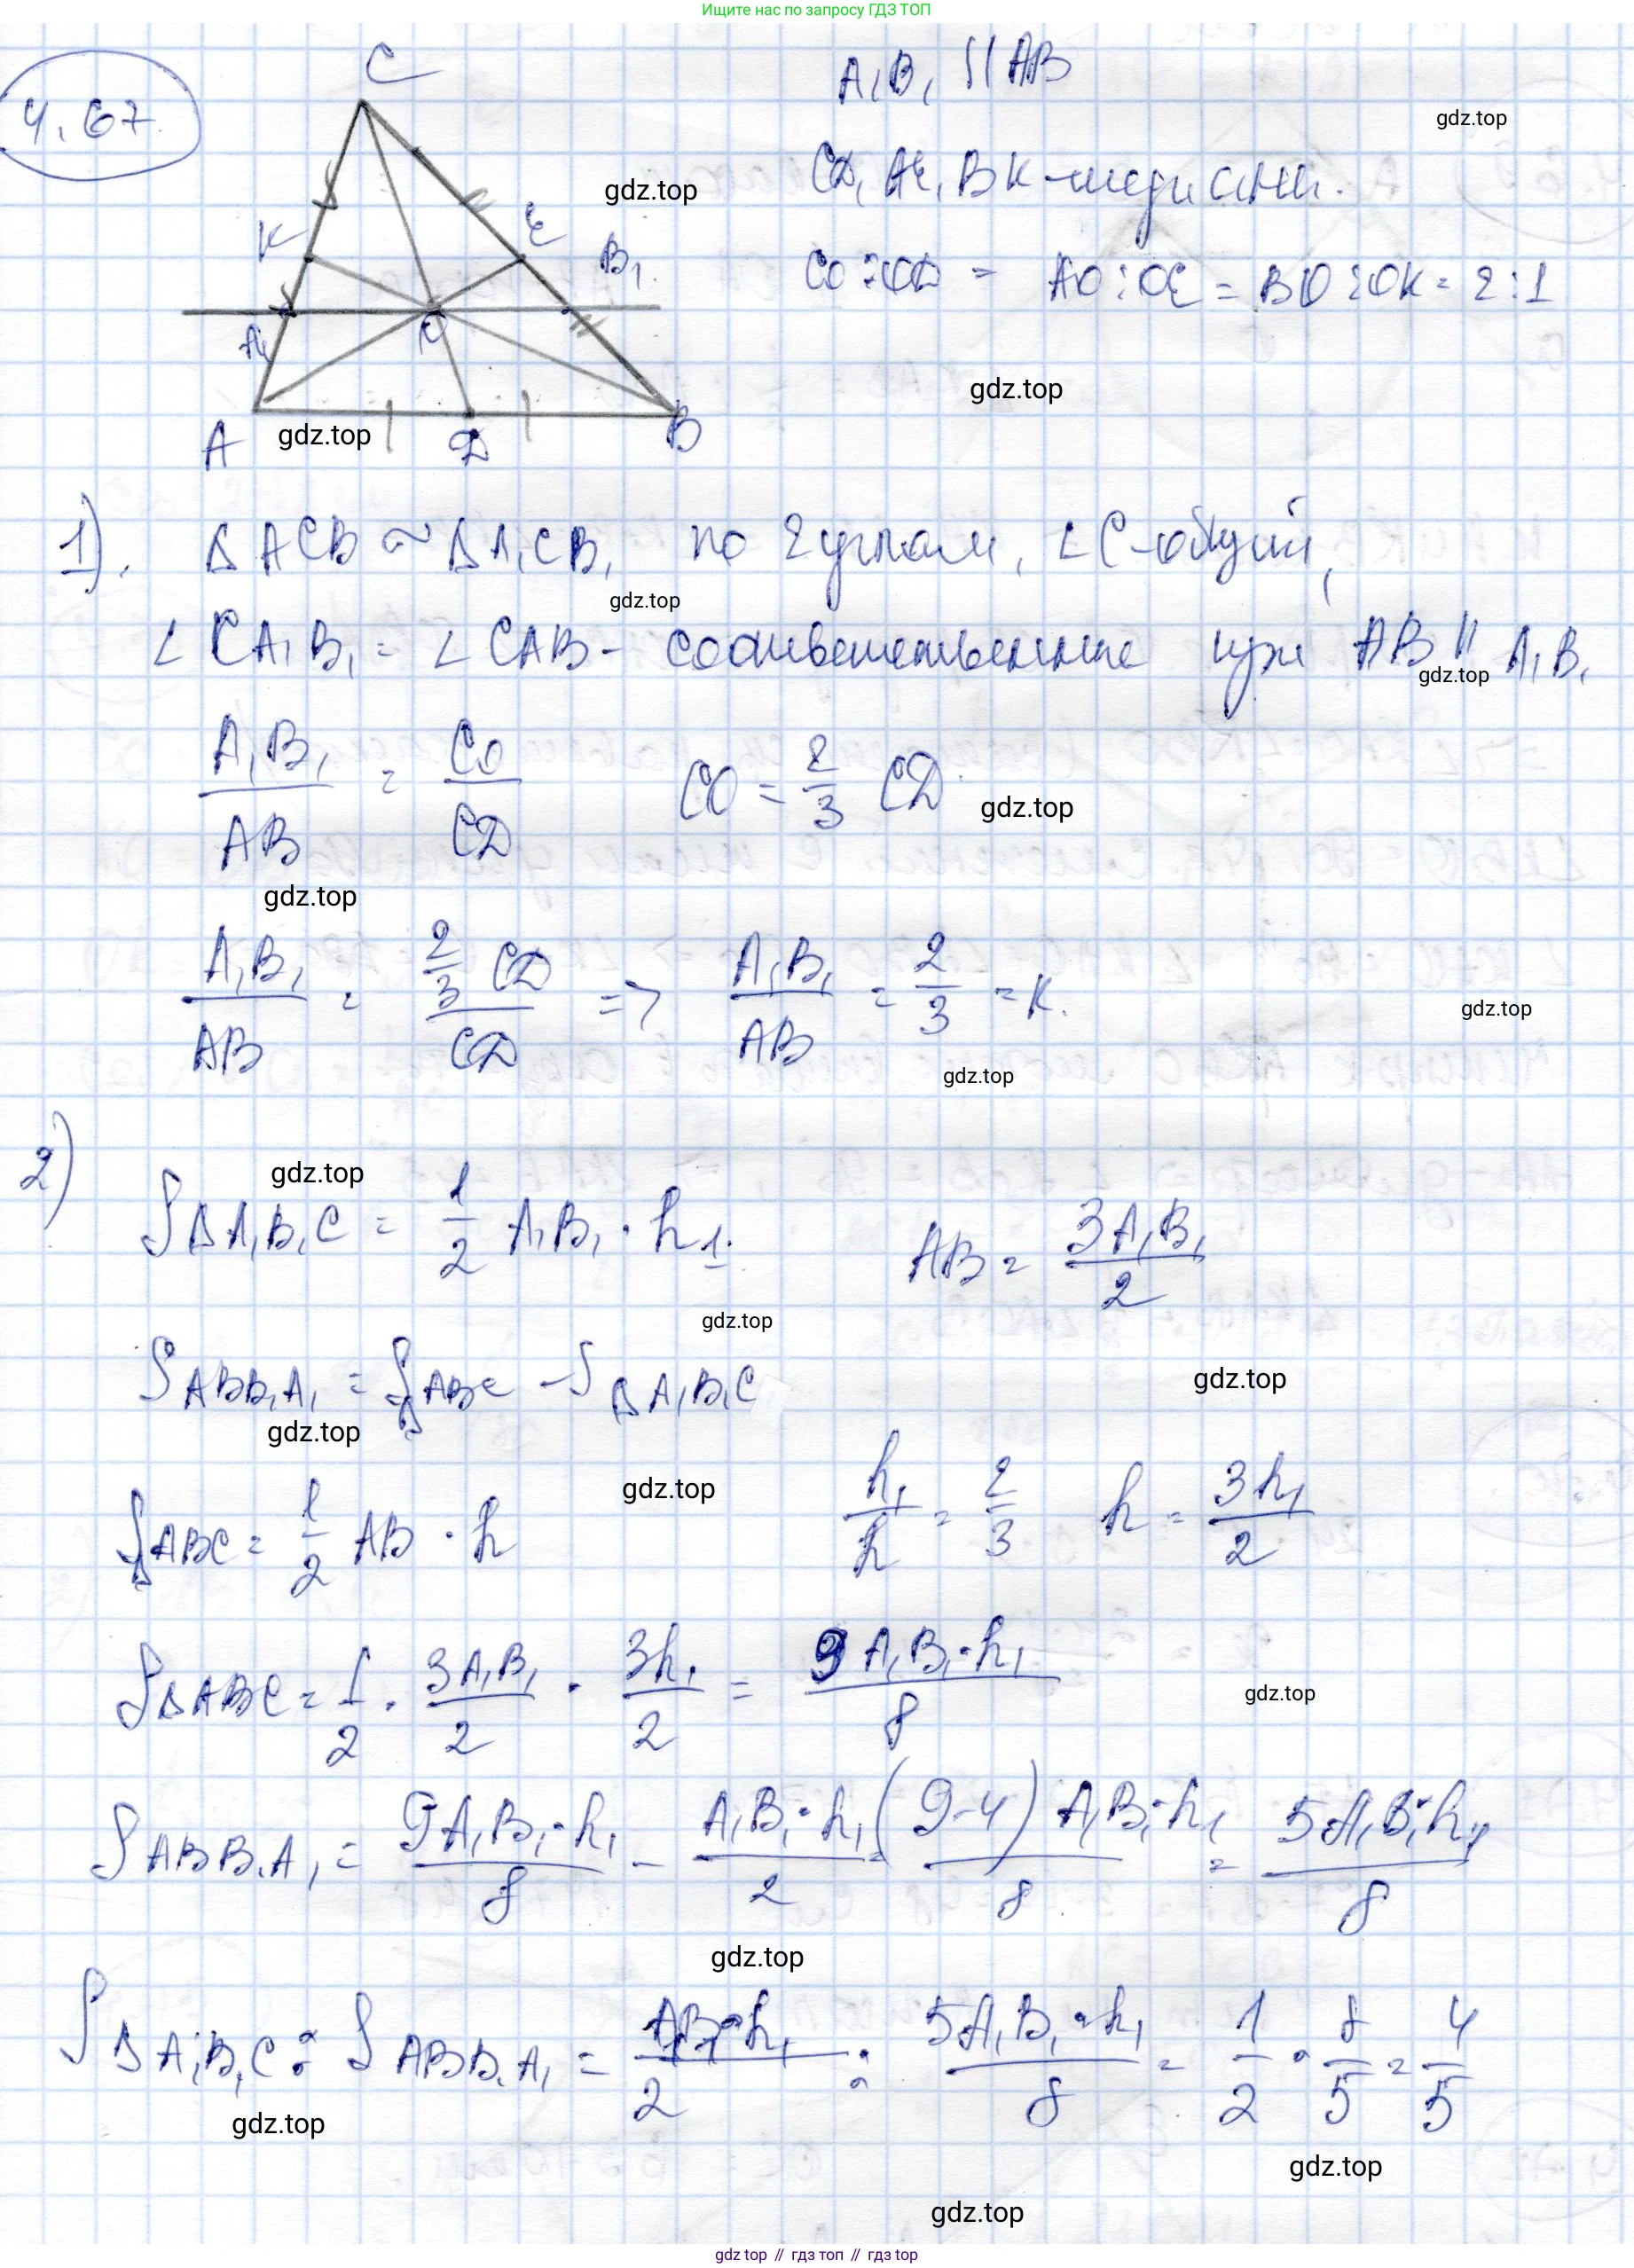 Ищите нас по запросу ГДЗ ТОП
4.67.
C
A₁B₁ || AB
gdz.top
CD, AE, BK - медианы.
gdz.top
K E B₁
CO : OD = AO : OE = BO : OK = 2 : 1
A₁ O
gdz.top
A gdz.top D B
1). Δ ACB ~ Δ A₁CB₁ по 2 углам, ∠C - общий,
gdz.top
∠ CA₁B₁ = ∠ CAB - соответственные при AB || A₁B₁
gdz.top
A₁B₁/AB = CO/CD CO = 2/3 CD
gdz.top
gdz.top
A₁B₁/AB = 2/3 CD/CD => A₁B₁/AB = 2/3 = K.
gdz.top
gdz.top
2)
gdz.top
S Δ A₁B₁C = 1/2 A₁B₁ · h₁. AB = 3A₁B₁/2
gdz.top
S ABB₁A₁ = S Δ ABC - S Δ A₁B₁C
gdz.top
gdz.top
gdz.top
S Δ ABC = 1/2 AB · h h₁/h = 2/3 h = 3h₁/2
S Δ ABC = 1/2 · 3A₁B₁/2 · 3h₁/2 = 9 A₁B₁ · h₁/8
gdz.top
S ABB₁A₁ = 9A₁B₁ · h₁/8 - A₁B₁ · h₁/2 = (9-4) A₁B₁ · h₁/8 = 5A₁B₁ h₁/8
gdz.top
S Δ A₁B₁C : S ABB₁A₁ = A₁B₁ · h₁/2 : 5A₁B₁ · h₁/8 = 1/2 · 8/5 = 4/5
gdz.top
gdz.top
gdz.top
gdz top // гдз топ // гдз top